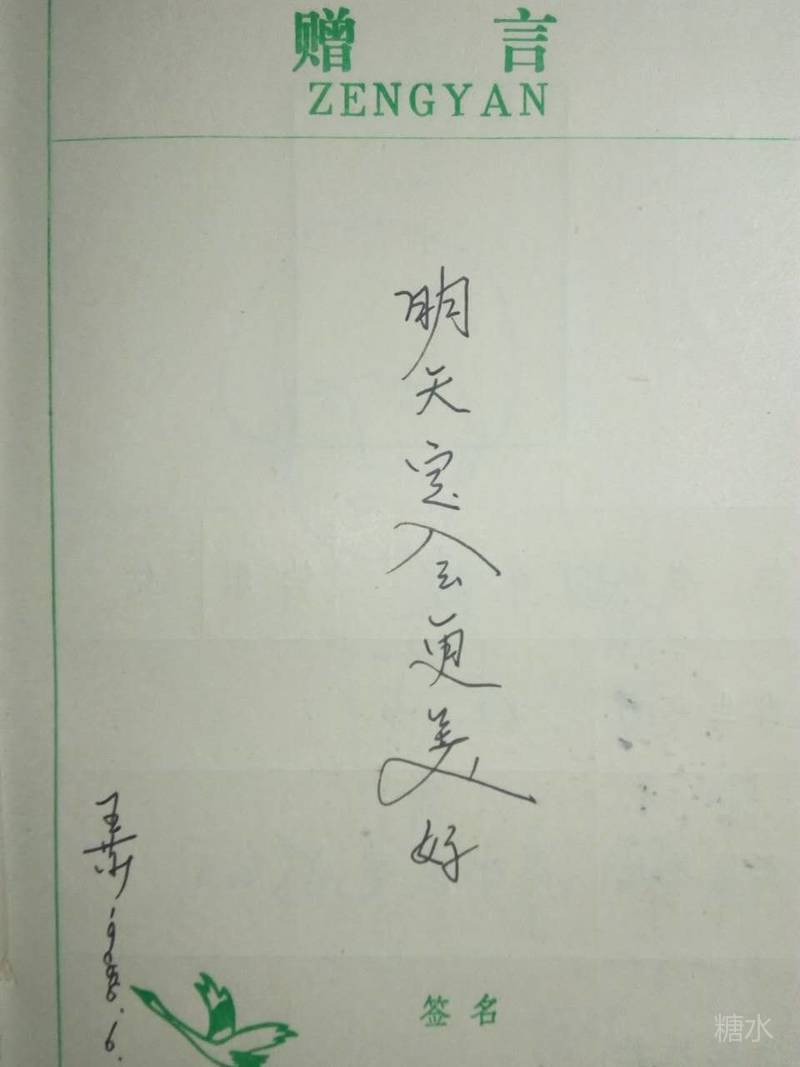 赠 言
ZENGYAN
明天定会更美好
1986.6.
签名
糖水